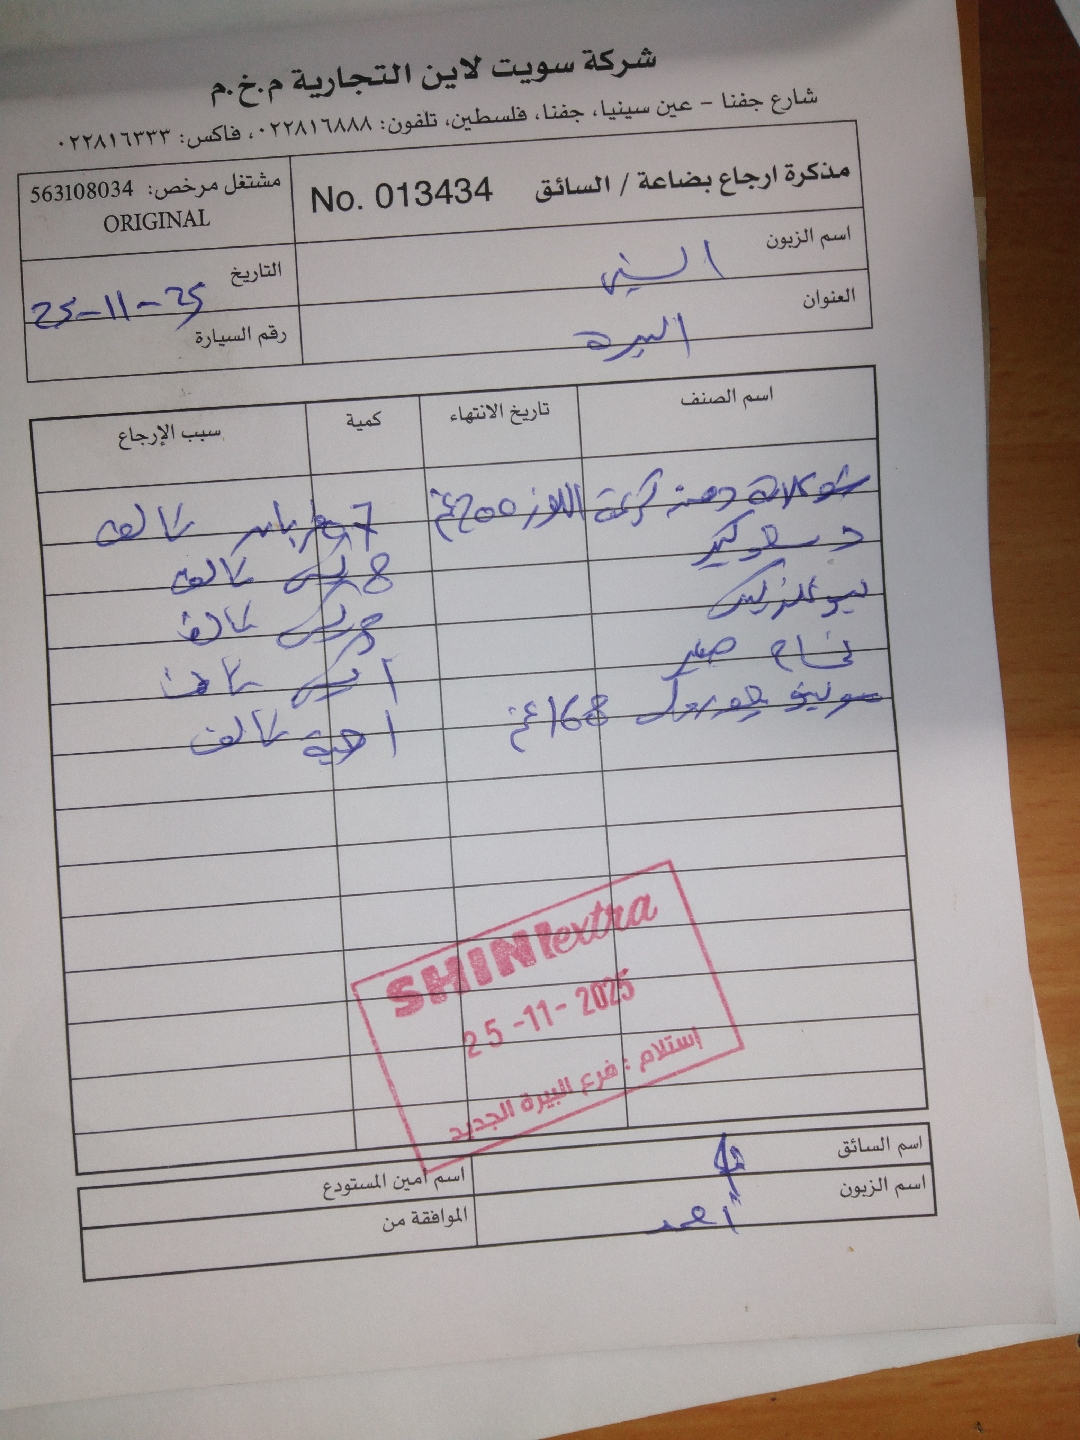 شركة سويت لاين التجارية م.خ.م
شارع جفنا - عين سينيا، جفنا، فلسطين، تلفون: ٠٢٢٨١٦٨٨٨، فاكس: ٠٢٢٨١٦٣٣٣
مذكرة ارجاع بضاعة / السائق No. 013434
مشتغل مرخص: 563108034
ORIGINAL
اسم الزبون الشني
التاريخ 25-11-25
العنوان البيرة
رقم السيارة
اسم الصنف تاريخ الانتهاء كمية سبب الإرجاع
شوكلاتة دهنة كريمة اللوز 200غم 7 تالف
8 تالف
تالف
صغير 1 تالف
168غم 1 حبة تالف
SHINI extra
25-11-2025
إستلام : فرع البيرة الجديد
اسم السائق
اسم أمين المستودع
اسم الزبون أحمد
الموافقة من